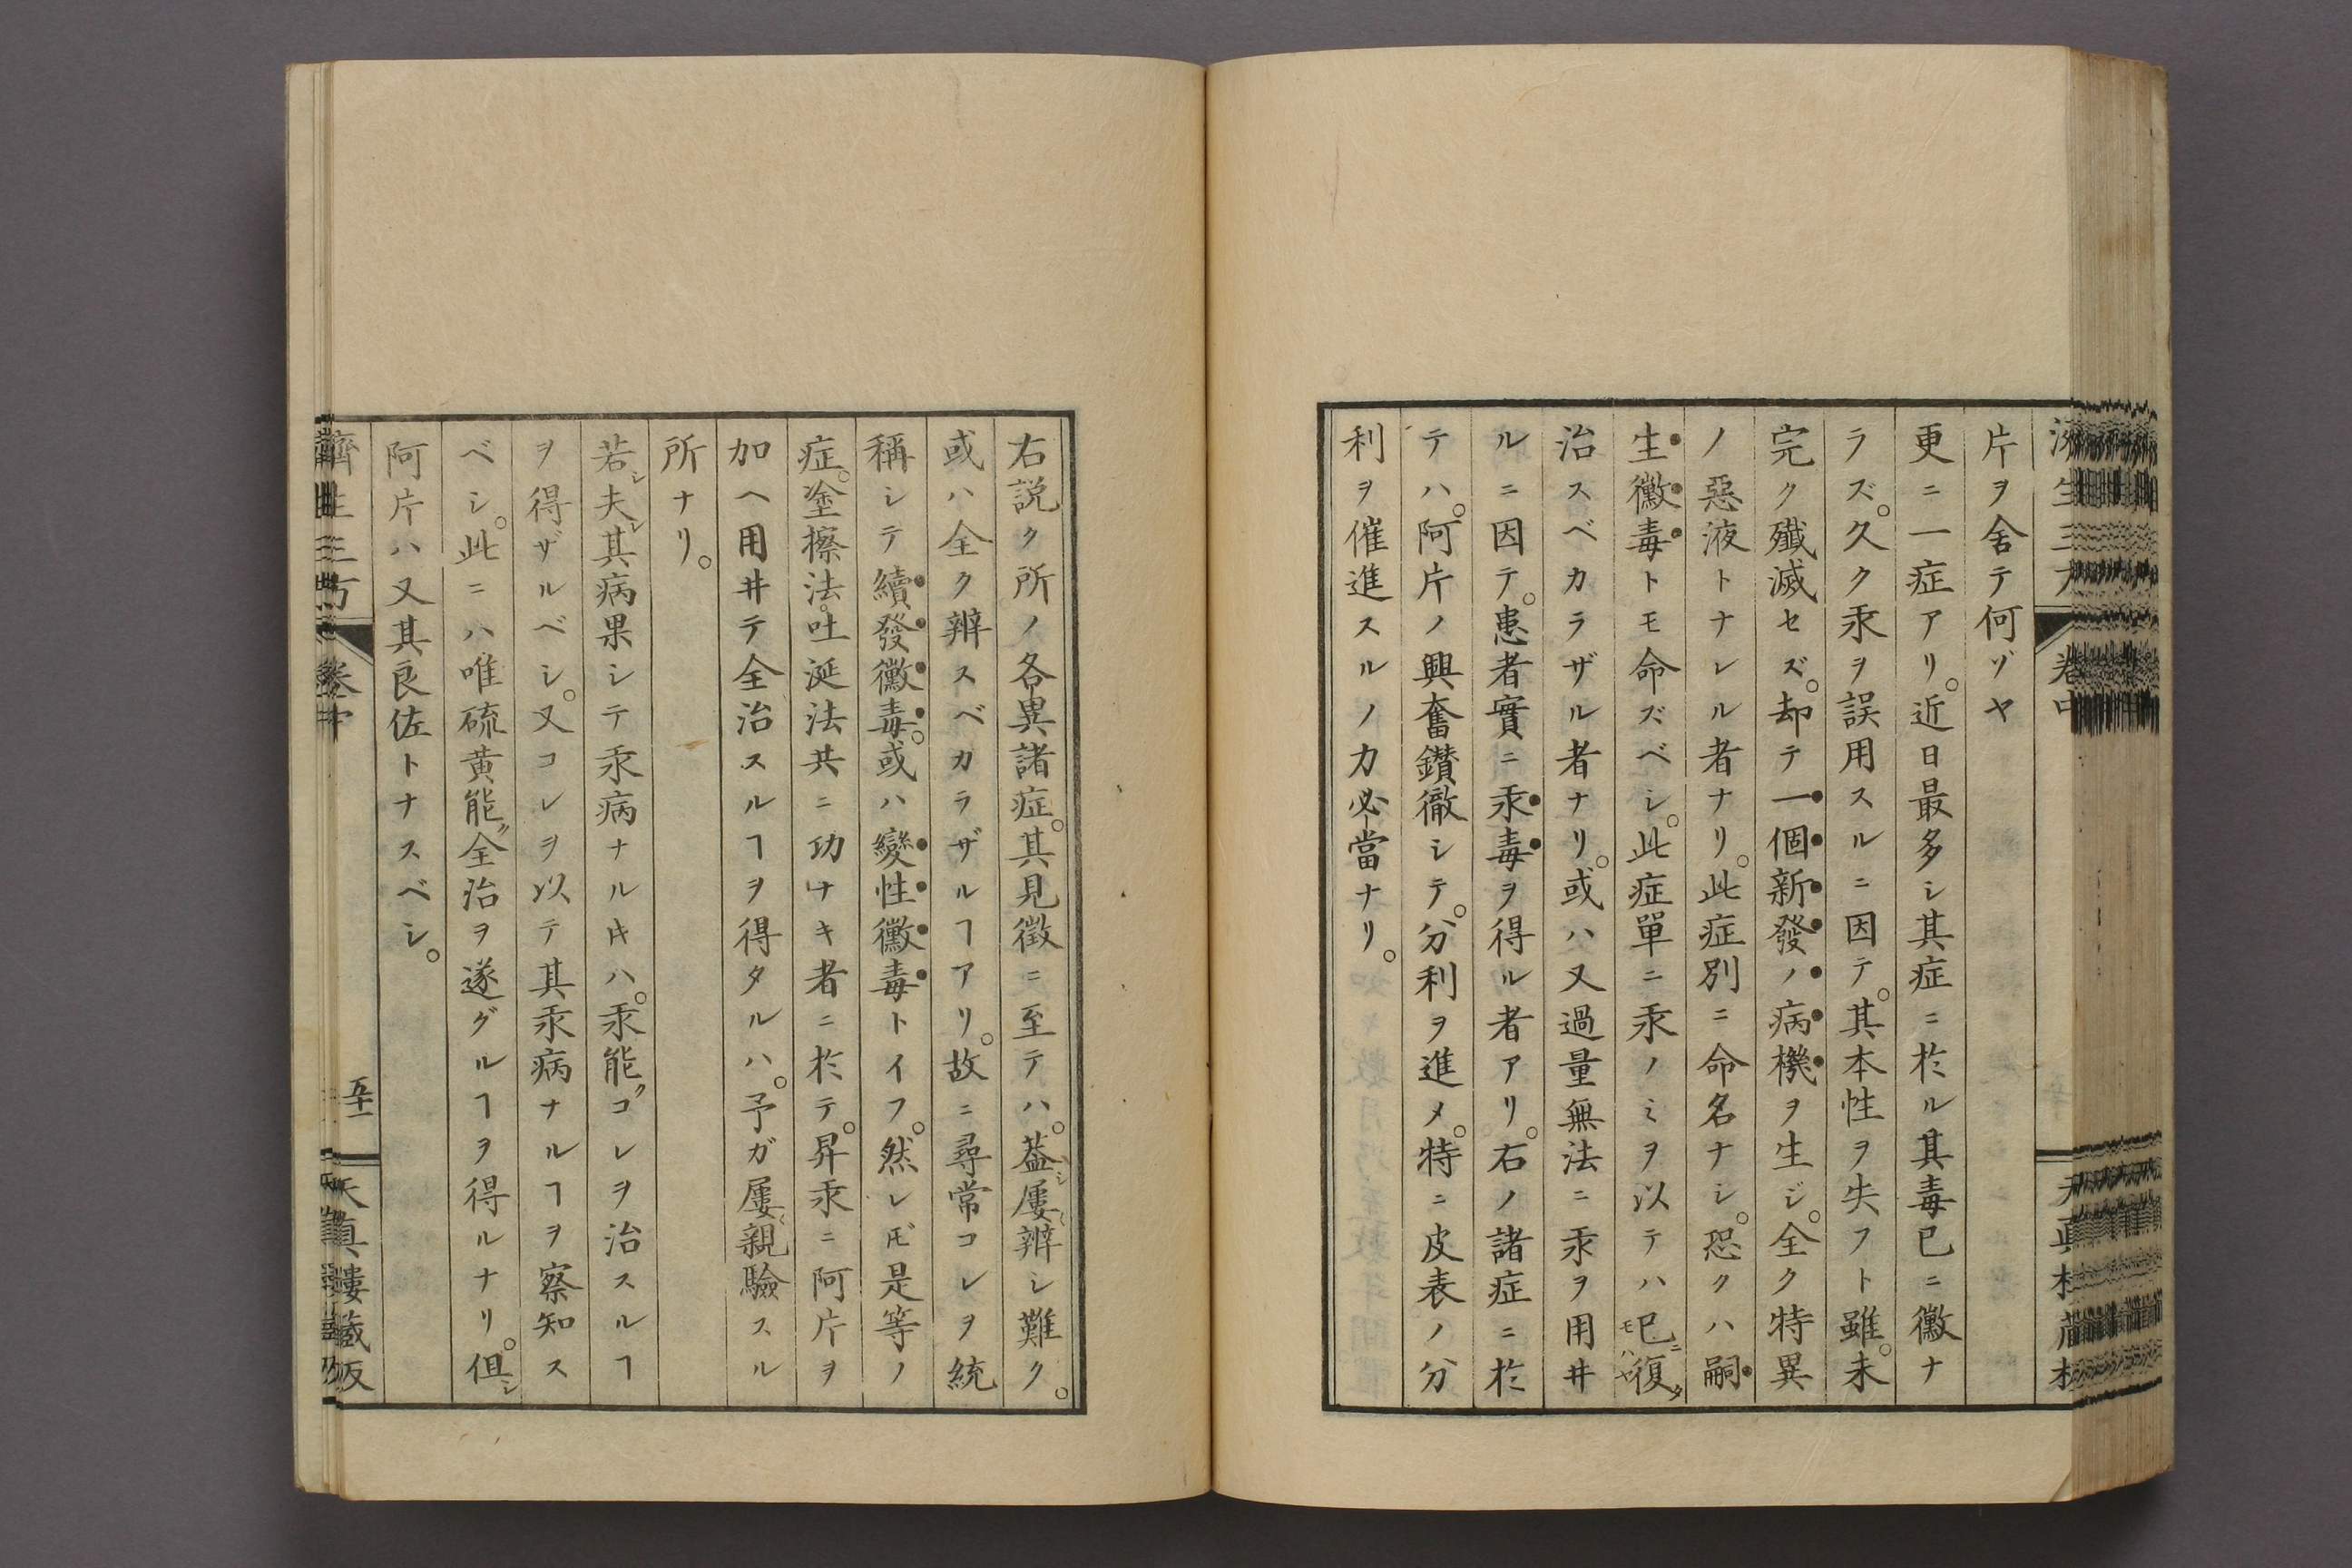 片ヲ舍テ何ゾヤ
更ニ一症アリ。近日最多シ其症ニ於ル其毒已ニ黴ナ
ラズ。久ク汞ヲ誤用スルニ因テ。其本性ヲ失フト雖。未
完ク殲滅セズ。却テ一個新發ノ病機ヲ生ジ。全ク特異
ノ惡液トナレル者ナリ。此症別ニ命名ナシ。恐クハ嗣
生黴毒トモ命ズベシ。此症單ニ汞ノミヲ以テハ已復
治スベカラザル者ナリ。或ハ又過量無法ニ汞ヲ用井
ルニ因テ。患者實ニ汞毒ヲ得ル者アリ。右ノ諸症ニ於
テハ。阿片ノ興奮鑚徹シテ。分利ヲ進メ。特ニ皮表ノ分
利ヲ催進スルノ力必當ナリ。
右説ク所ノ各異諸症。其見徴ニ至テハ。葢屢辨シ難ク。
或ハ全ク辨スベカラザルヿアリ。故ニ尋常コレヲ統
稱シテ續發黴毒。或ハ變性黴毒トイフ。然レ𪜈是等ノ
症。塗擦法。吐涎法共ニ功ナキ者ニ於テ。昇汞ニ阿片ヲ
加ヘ用井テ全治スルヿヲ得タルハ。予ガ屢親驗スル
所ナリ。
若シ夫レ其病果シテ汞病ナル𪜈ハ。汞能クコレヲ治スルヿ
ヲ得ザルベシ。又コレヲ以テ其汞病ナルヿヲ察知ス
ベシ。此ニハ唯硫黄能ク全治ヲ遂グルヿヲ得ルナリ。但シ
阿片ハ又其良佐トナスベシ。
濟生三方 卷中 五十一 天真樓藏版